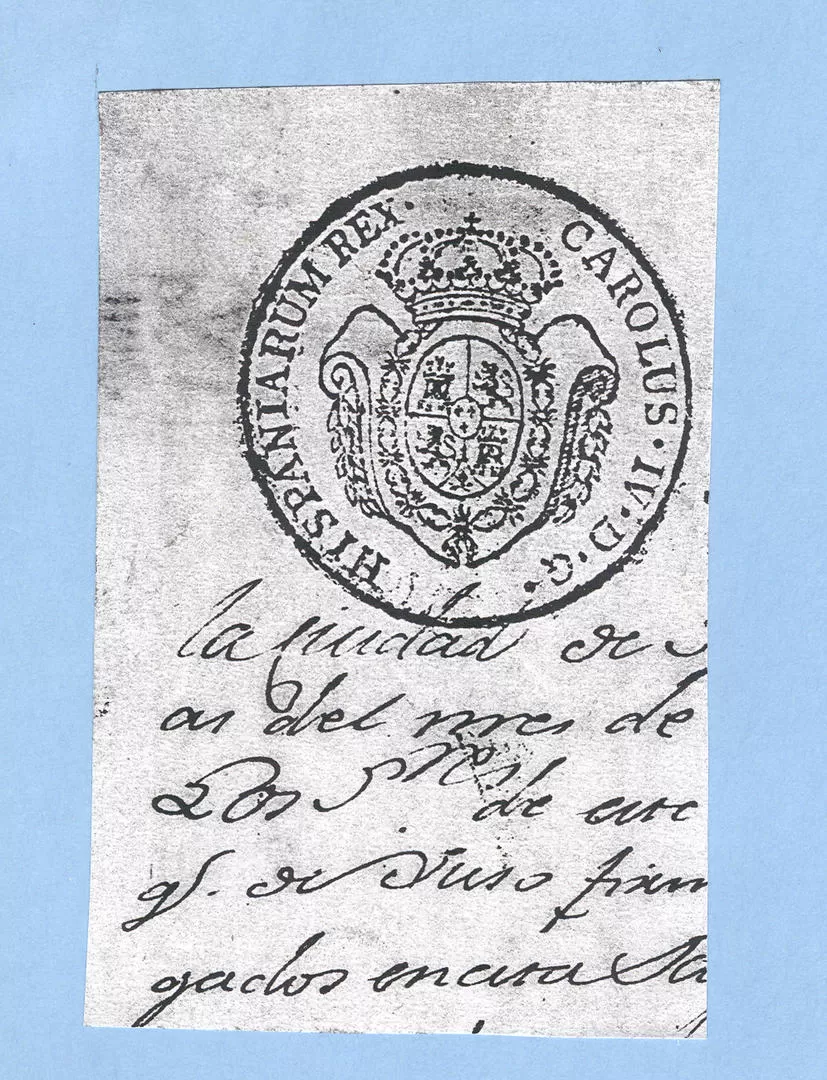 CAROLUS · IV · D · G · HISPANIARUM REX ·
la ciudad de
as del mes de
Los Sres de este
qe. de Suso firm
gados en esta Sa